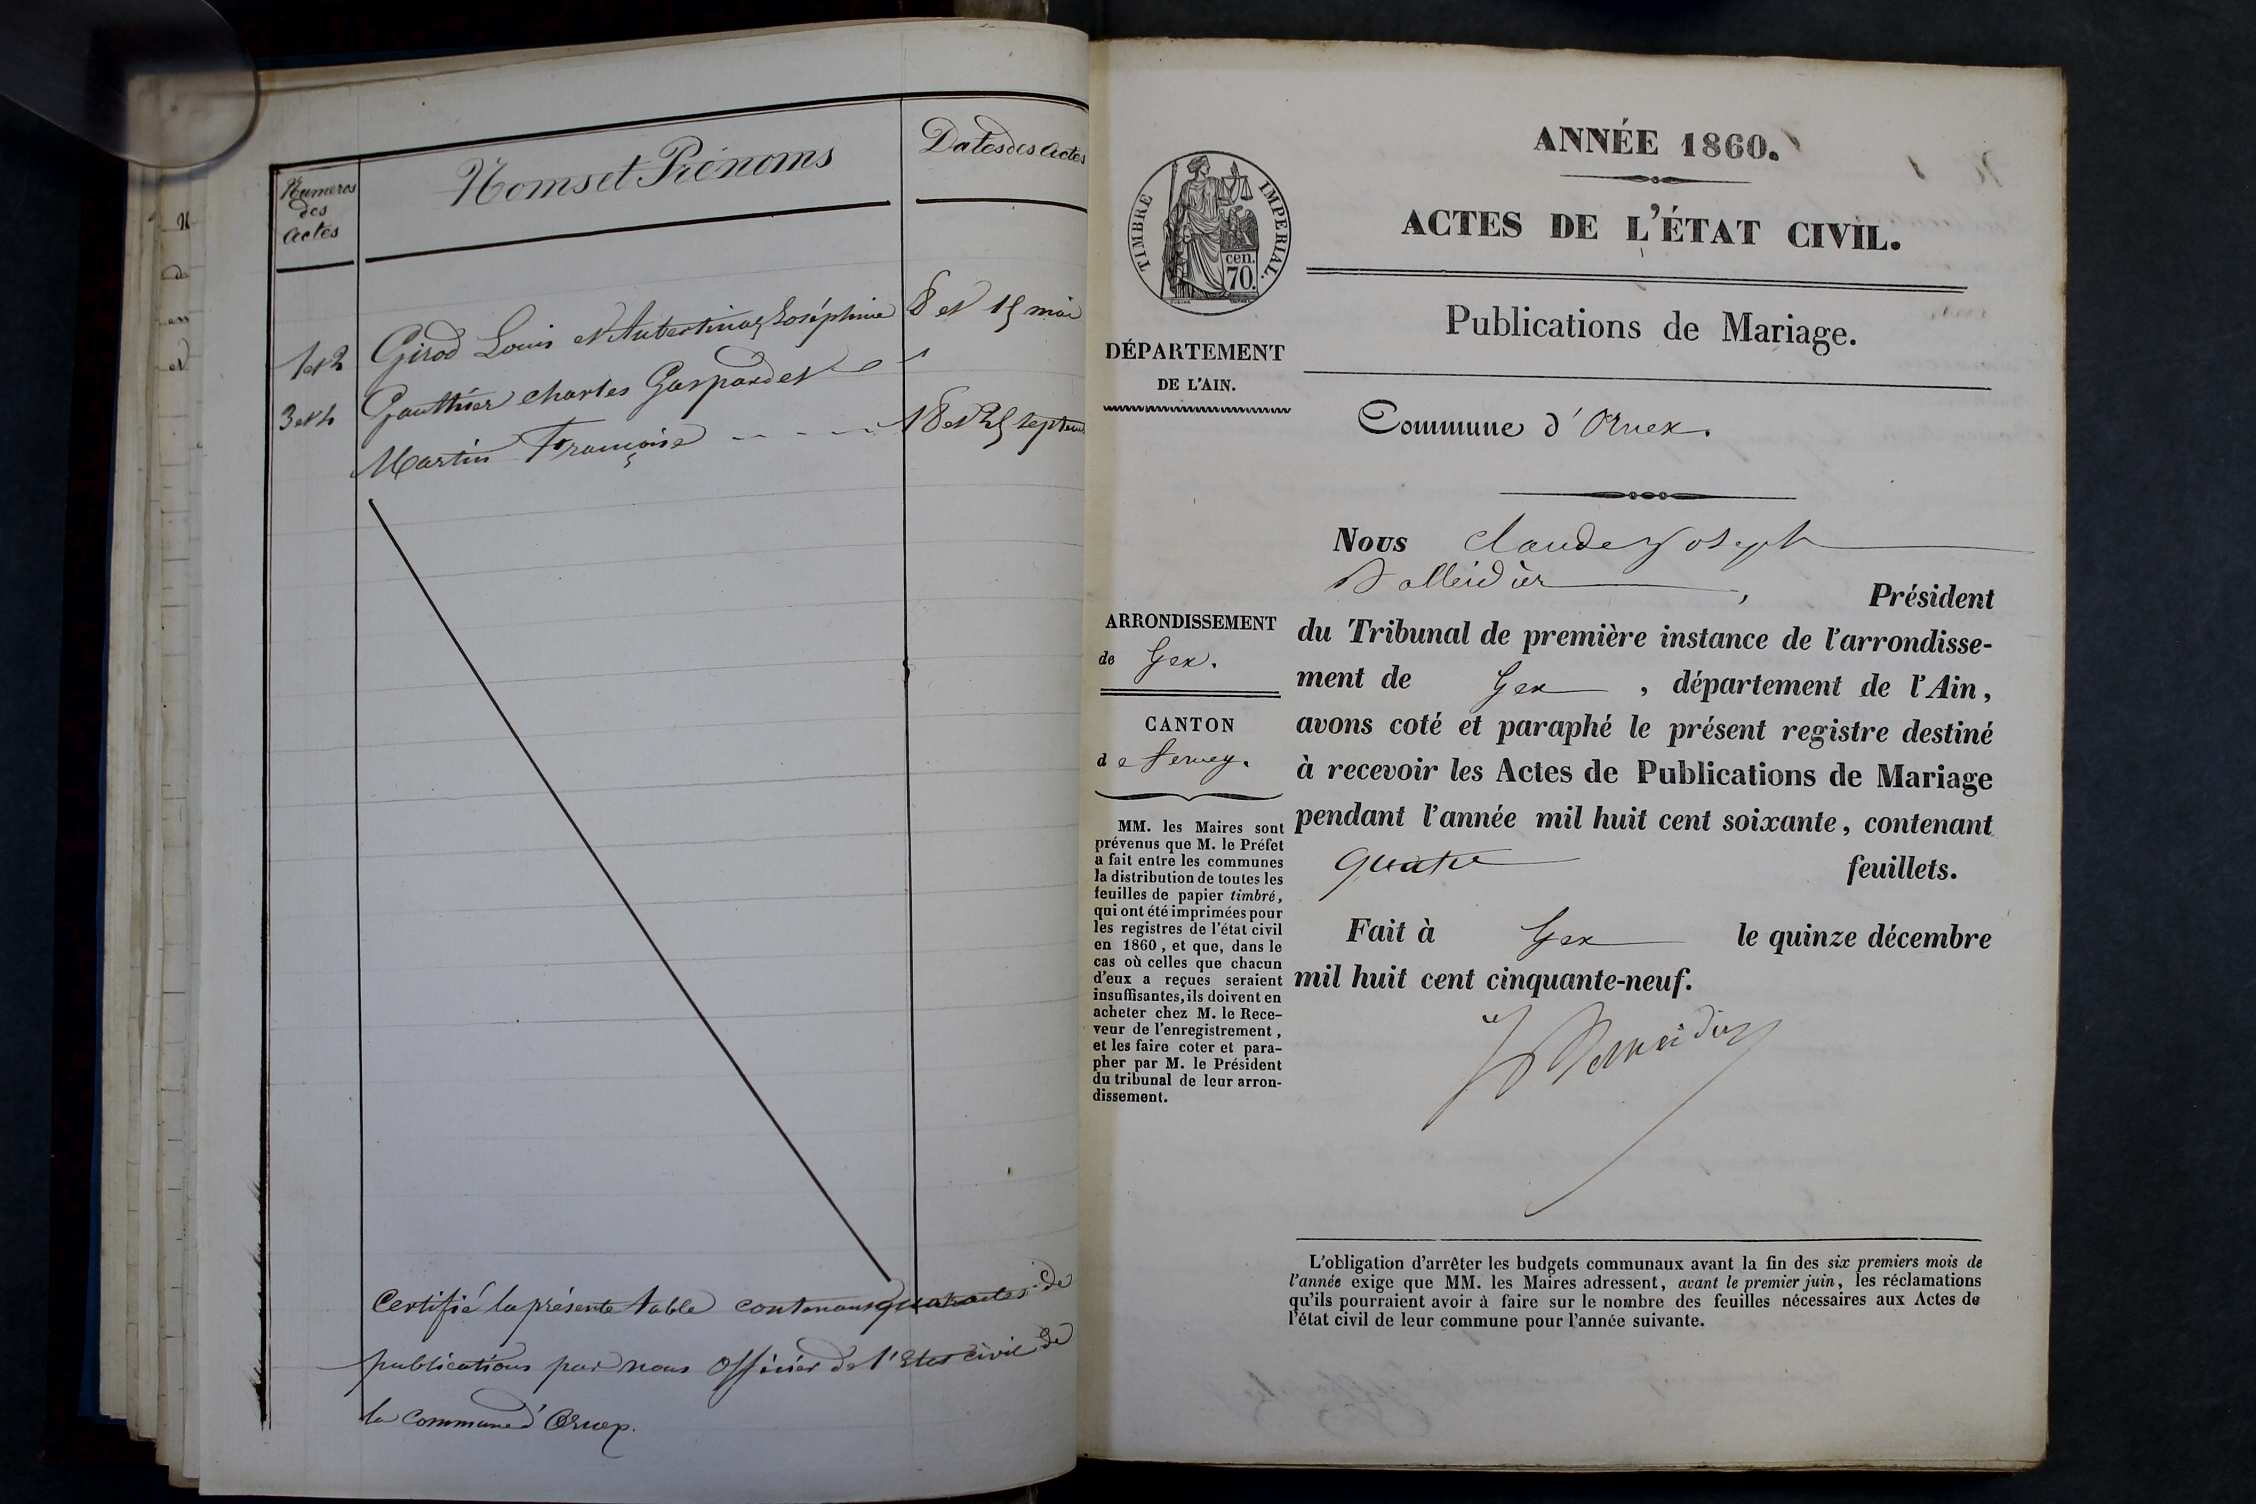 Numéros
des
Actes
Noms et Prénoms
Dates des Actes
1 et 2
Girod Louis et Aubertinaz Joséphine
8 et 15 mai
3 et 4
Gauthier charles Gaspard et
Martin Françoise
18 et 25 septem
Certifié la présente table contenant quatre actes de
publications par nous Officier de l'Etat civil de
la commune d'Ornex.
ANNÉE 1860.
ACTES DE L'ÉTAT CIVIL.
TIMBRE IMPERIAL.
cen.
70.
Publications de Mariage.
DÉPARTEMENT
DE L'AIN.
Commune d'Ornex.
ARRONDISSEMENT
de Gex.
CANTON
de Ferney.
MM. les Maires sont
prévenus que M. le Préfet
a fait entre les communes
la distribution de toutes les
feuilles de papier timbré,
qui ont été imprimées pour
les registres de l'état civil
en 1860, et que, dans le
cas où celles que chacun
d'eux a reçues seraient
insuffisantes, ils doivent en
acheter chez M. le Rece-
veur de l'enregistrement,
et les faire coter et para-
pher par M. le Président
du tribunal de leur arron-
dissement.
Nous claude Joseph
, Président
du Tribunal de première instance de l'arrondisse-
ment de Gex, département de l'Ain,
avons coté et paraphé le présent registre destiné
à recevoir les Actes de Publications de Mariage
pendant l'année mil huit cent soixante, contenant
quatre feuillets.
Fait à Gex le quinze décembre
mil huit cent cinquante-neuf.
L'obligation d'arrêter les budgets communaux avant la fin des six premiers mois de
l'année exige que MM. les Maires adressent, avant le premier juin, les réclamations
qu'ils pourraient avoir à faire sur le nombre des feuilles nécessaires aux Actes de
l'état civil de leur commune pour l'année suivante.